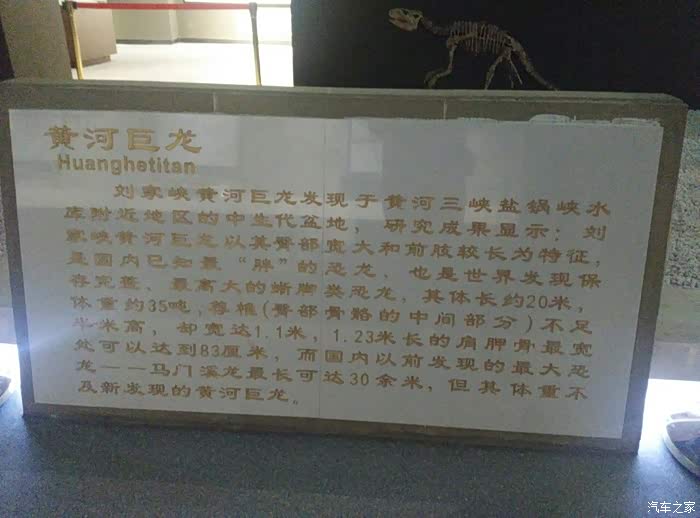 黄河巨龙
Huanghetitan
刘家峡黄河巨龙发现于黄河三峡盐锅峡水
库附近地区的中生代盆地，研究成果显示：刘
家峡黄河巨龙以其臀部宽大和前肢较长为特征，
是国内已知最“胖”的恐龙，也是世界发现保
存完整、最高大的蜥脚类恐龙，其体长约20米，
体重约35吨，荐椎（臀部骨骼的中间部分）不足
半米高，却宽达1.1米，1.23米长的肩胛骨最宽
处可以达到83厘米，而国内以前发现的最大恐
龙——马门溪龙最长可达30余米，但其体重不
及新发现的黄河巨龙。
汽车之家